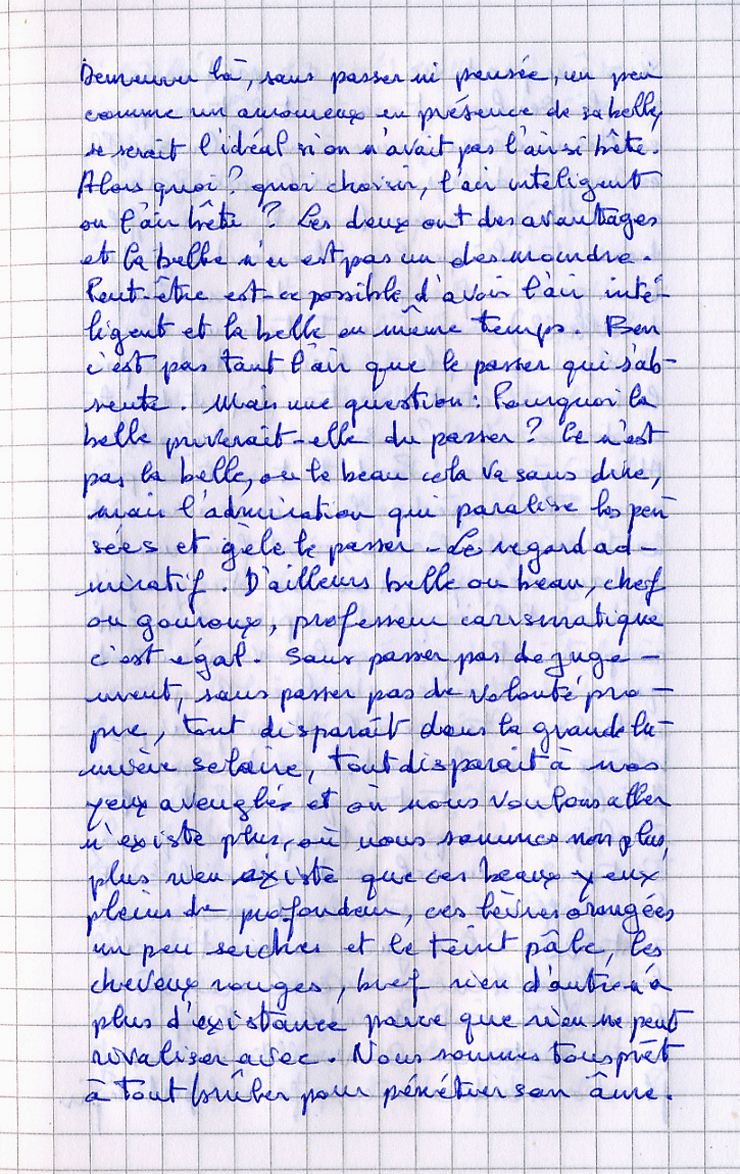 Demeurer là, sans passer ni pensée, un peu
comme un amoureux en présence de sa belle,
se serait l'idéal si on n'avait pas l'air si bête.
Alors quoi? quoi choisir, l'air inteligent
ou l'air bête? Les deux ont des avantages
et la belle n'en est pas un des moindre.
Peut-être est-ce possible d'avoir l'air inté-
ligent et la belle en même temps. Ben
c'est pas tant l'air que le passer qui s'ab-
sente. Mais une question: Pourquoi la
belle priverait-elle du passer? Ce n'est
pas la belle, ou le beau cela va sans dire,
mais l'admiration qui paralise les pen
sées et gèle le passer - Le regard ad-
miratif. D'ailleurs belle ou beau, chef
ou gouroux, professeur carismatique
c'est égal. Sans passer pas de juge-
ment, sans passer pas de volonté pro-
pre, tout disparaît dans la grande lu-
mière solaire, tout disparait à nos
yeux aveuglés et où nous voulons aller
n'existe plus, où nous sommes non plus,
plus rien existe que ces beaux yeux
pleins de profondeur, ces lèvres orangées
un peu seiches et le teint pâle, les
cheveux rouges, bref rien d'autre n'a
plus d'existance parce que rien ne peut
rivaliser avec. Nous sommes tous prêt
à tout brûler pour pénétrer son âme.